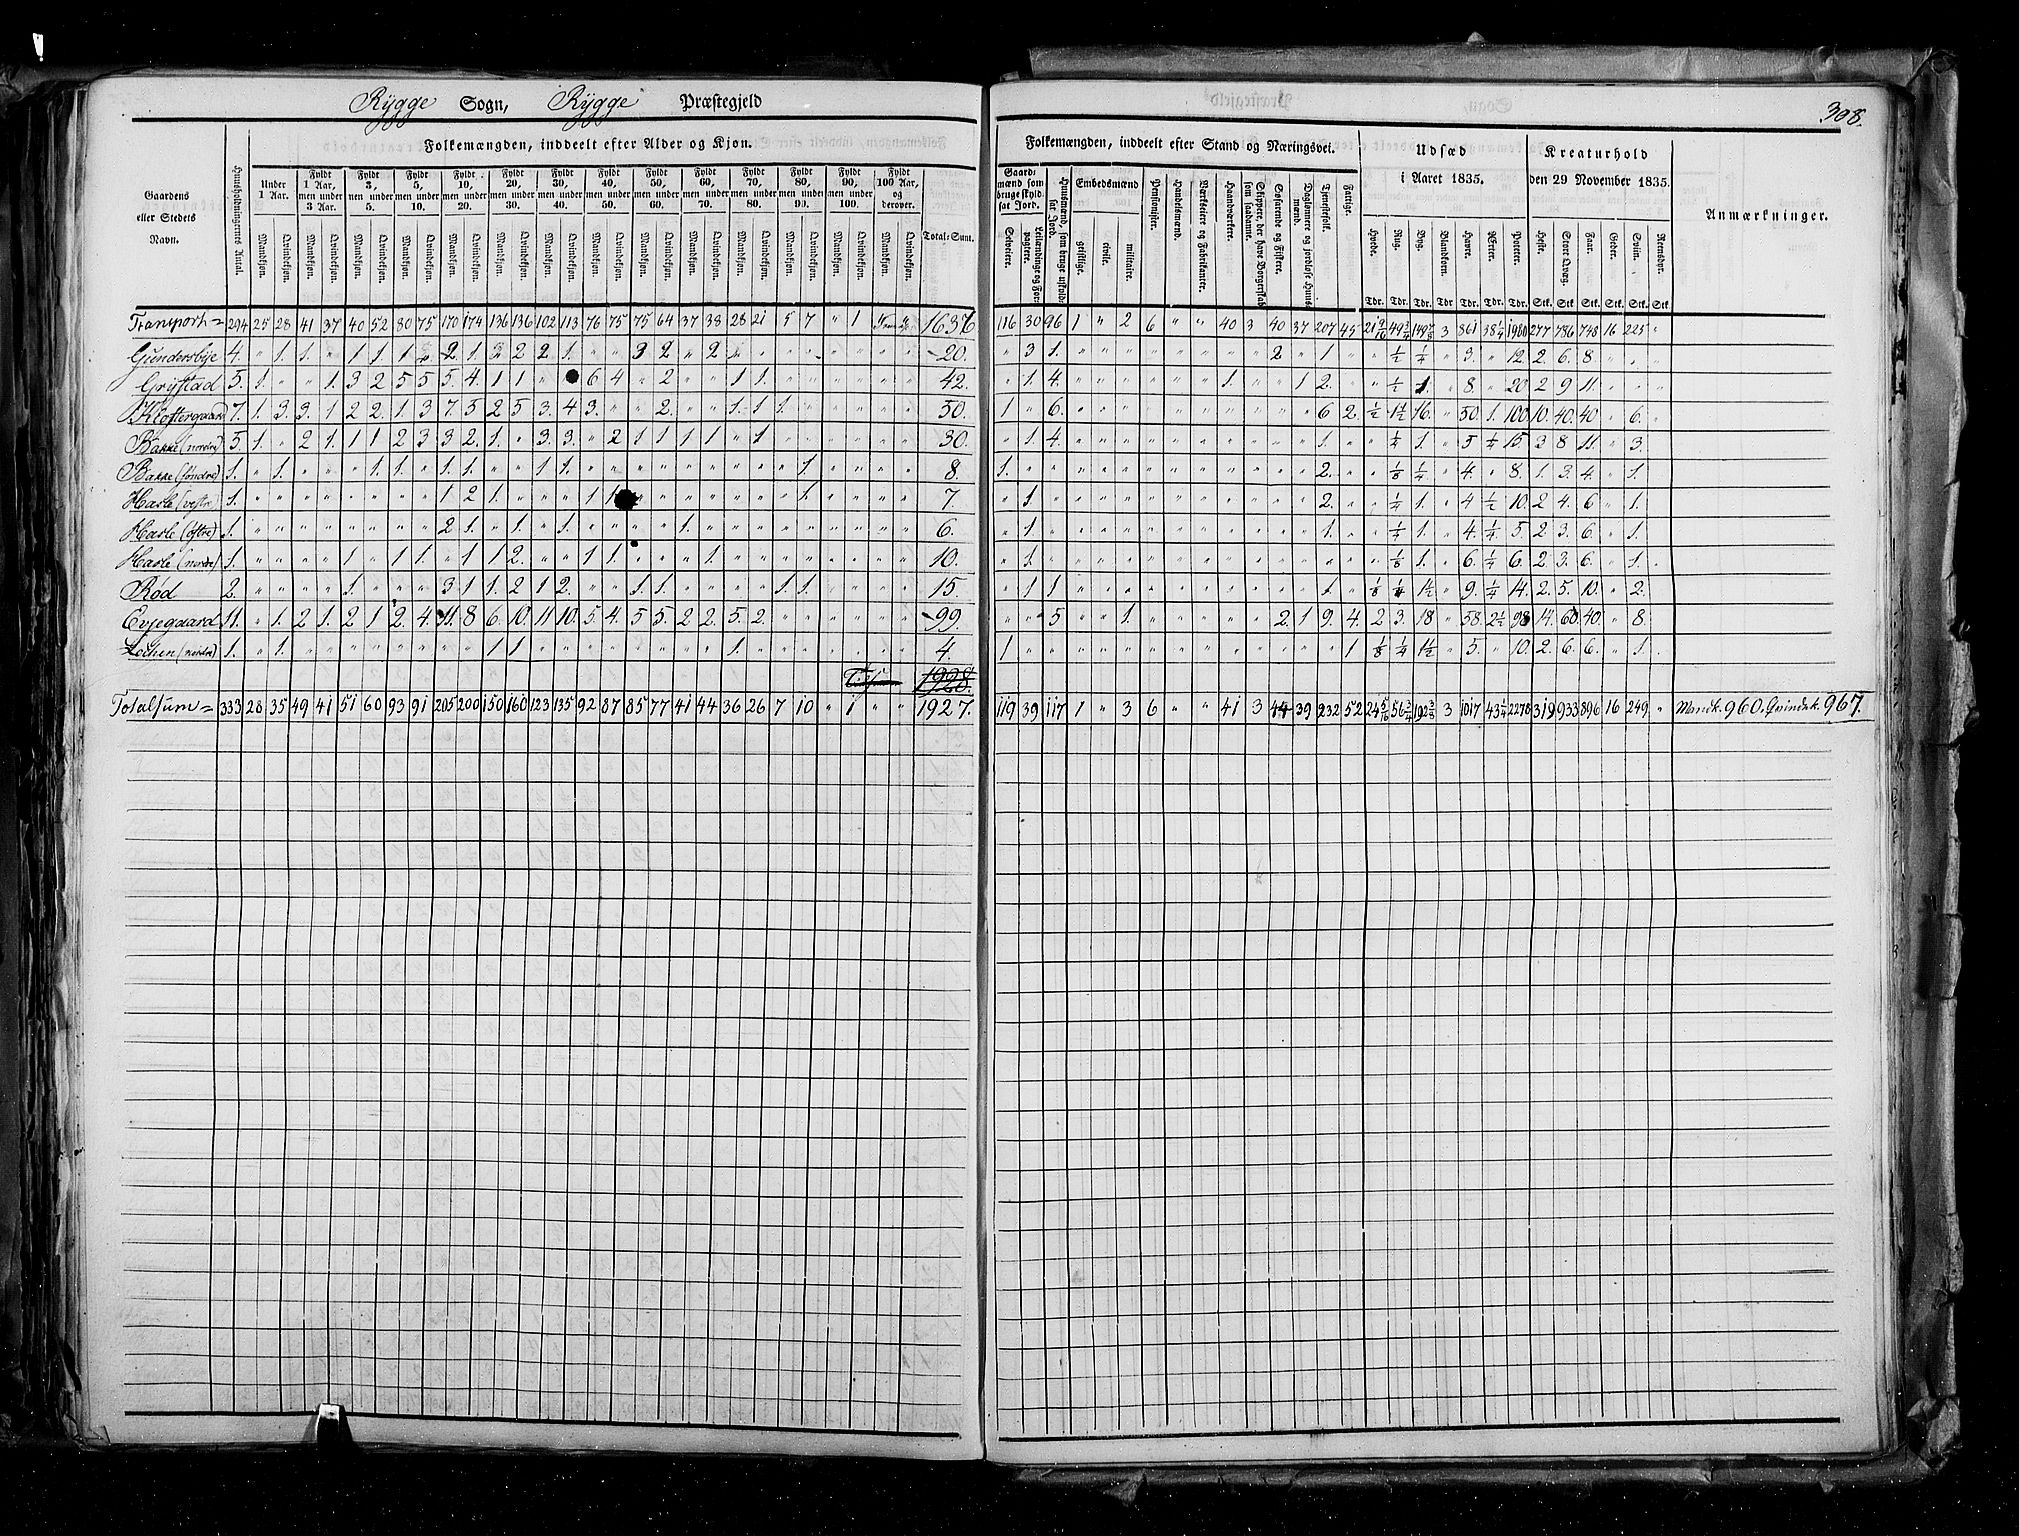 Rygge Sogn, Rygge Præstegjeld
308.
Folkemængden, inddeelt efter Alder og Kjøn.
Folkemængden, inddeelt efter Stand og Næringsvei.
Udsæd i Aaret 1835.
Kreaturhold den 29 November 1835.
Anmærkninger.
Gaardens eller Stedets Navn.
Huusholdningernes Antal.
Under 1 Aar.
Fyldt 1 Aar, men under 3 Aar.
Fyldt 3, men under 5.
Fyldt 5, men under 10.
Fyldt 10, men under 20.
Fyldt 20, men under 30.
Fyldt 30, men under 40.
Fyldt 40, men under 50.
Fyldt 50, men under 60.
Fyldt 60, men under 70.
Fyldt 70, men under 80.
Fyldt 80, men under 90.
Fyldt 90, men under 100.
Fyldt 100 Aar, og derover.
Mandkjøn. Qvindekjøn.
Total-Sum.
Gaardmænd som bruge skyldsat Jord.
Selveiere.
Leilændinge og Forpagtere.
Huusmænd, som bruge uskyldsat Jord.
Embedsmænd
geistlige.
civile.
militaire.
Pensionister.
Handelsmænd.
Værkeiere og Fabrikanter.
Haandværkere.
Skippere, der have Borgerskab som saadanne.
Søfarende og Fiskere.
Daglønnere og jordløse Huusmænd.
Tjenestefolk.
Fattige.
Hvede. Rug. Byg. Blandkorn. Havre. Ærter. Poteter.
Heste. Stort Qvæg. Faar. Geder. Sviin. Reensdyr.
Tdr. Tdr. Tdr. Tdr. Tdr. Tdr. Tdr. Stk. Stk. Stk. Stk. Stk. Stk.
Transport = 294 25 28 41 37 40 52 80 75 170 174 136 136 102 113 76 75 75 64 37 38 28 21 5 7 " 1 1636 116 30 96 1 " 2 6 " " 40 3 40 37 207 45 21 9/16 49 3/4 149 7/8 3 861 38 1/4 1980 277 786 748 16 225 "
Gundersbye 4. " 1. 1. " 1 1. 1 2. 1. 2 2 2 1. " " 3 2. " 2 20. " 3 1. 2 " 1 1/2 1/4 " 3. " 12. 2. 6. 8
Grystad 5. 1. " " 1. 3 2 5 5 5 4. 1 1 " 6 4 " 2 " " 1 1. 42. " 1. 4. 1. " 1 2. 1/2 1. " 8. " 20 2 9 11.
Klostergaard 7. 1. 3 3. 1 2 2. 1 3 7. 5 2 5 3. 4 3. " " 2. " " 1. 1. 1. 50. 1 " 6. 6 2. 1/2 1 1/2 16. " 50. 1. 100. 10. 40. 40 " 6.
Bakke (nordre) 5. 1. " 2 1. 1 1 2 3 3 2. 1. " 3 3. " 2 1 1 1 1 " 1. 30. " 1. 4. 1. 1/4 1. " 5 1/4 15. 3 8 11. " 3.
Bakke (søndre) 1. " 1. " " " 1. 1. " 1. 1. " " 1 1. 1. 8. 1. 2. 1/8 1/4 " 4. " 8. 1. 3. 4 " 1.
Hasle (vestre) 1. 1 2 1. 1 1 1. 7. " 1 2. 1/4 1. " 4 1/2 10. 2 4. 6 " 1.
Hasle (østre) 1. 2 1. " 1. " 1. 1. 6. " 1. 1. 1/4 1. " 4. 1/4 5. 2 3. 6. " 1.
Hasle (nordre) 1. 1 " 1 1. " 1 1 2. " " 1 1. 1. 10. " 1. 1/8 1. " 6. 1/4 6. 2 3. 6. " 1.
Rød 2. 1. 3 1 1. 2 1 2. " " 1. 1. 1. 1. 15. " 1 1 1. 1/8 1/4 1 1/2 " 9. 1/4 14. 2. 5. 10. " 2.
Evjegaard 11. " 1. 2 1. 2 1 2. 4. 11. 8 6. 10. 11 10. 5 4. 5 5. 2 2. 5. 2. 99. " " 5 " " 1. 2 1 9. 4 2 3. 18 " 58. 2 1/2 98 14. 60. 40. " 8.
Lochen (nordre) 1. " 1. 1 1. 1. 4. 1 1 1/8 1/4 1 1/2 " 5. " 10. 2. 6. 6. " 1.
1928.
Totalsum = 333 28 35 49 41 51 60 93 91 205 200 150 160 123 135 92 87 85 77 41 44 36 26 7 10 " 1 " " 1927. 119 39 117 1 " 3 6 " " 41 3 44 39 232 52 24 5/16 56 3/4 192 3/8 3 1017 43 1/4 2278 319 933 896 16 249 " Mandk. 960. Qvindek. 967.